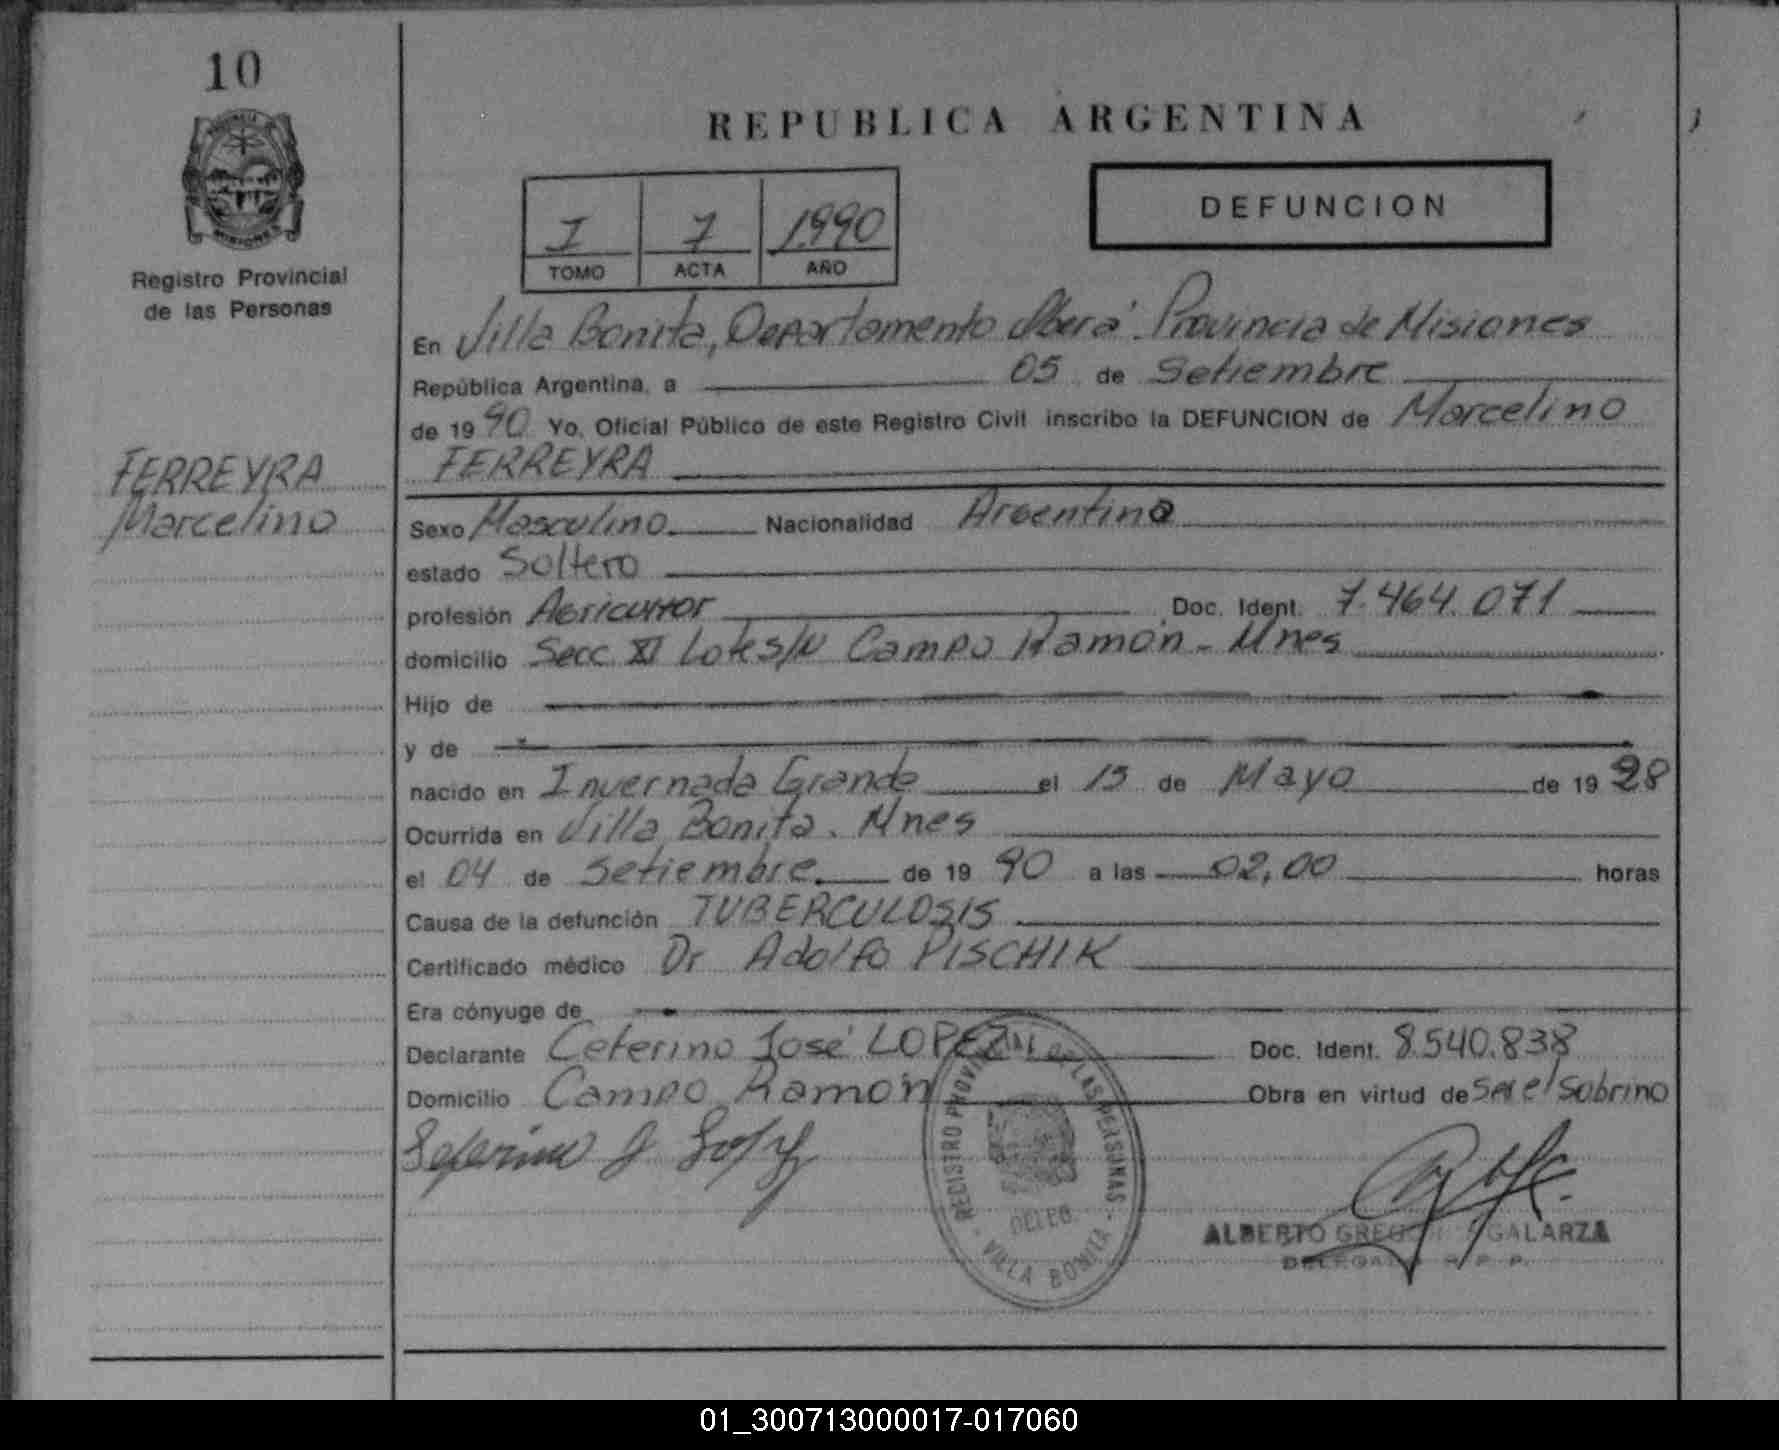 10
PROVINCIA
MISIONES
Registro Provincial
de las Personas
FERREYRA
Marcelino
REPUBLICA ARGENTINA
I 7 1990
TOMO ACTA AÑO
DEFUNCION
En Villa Bonita, Departamento Oberá Provincia de Misiones
República Argentina, a 05 de Setiembre
de 1990 Yo, Oficial Público de este Registro Civil inscribo la DEFUNCION de Marcelino
FERREYRA
Sexo Masculino Nacionalidad Argentina
estado Soltero
profesión Agricultor Doc. Ident. 7.464.071
domicilio Secc XI Lote s/N Campo Ramón - Mnes
Hijo de
y de
nacido en Invernada Grande el 15 de Mayo de 1928
Ocurrida en Villa Bonita. Mnes
el 04 de Setiembre de 1990 a las 02,00 horas
Causa de la defunción TUBERCULOSIS
Certificado médico Dr Adolfo PISCHIK
Era cónyuge de
Declarante Ceferino José LOPEZ Doc. Ident. 8.540.838
Domicilio Campo Ramón Obra en virtud de Ser el Sobrino
Seferino J Lopez
REGISTRO PROVINCIAL DE LAS PERSONAS
DELEG.
VILLA BONITA
ALBERTO GREGORIO GALARZA
DELEGADO R. P. P.
01_300713000017-017060